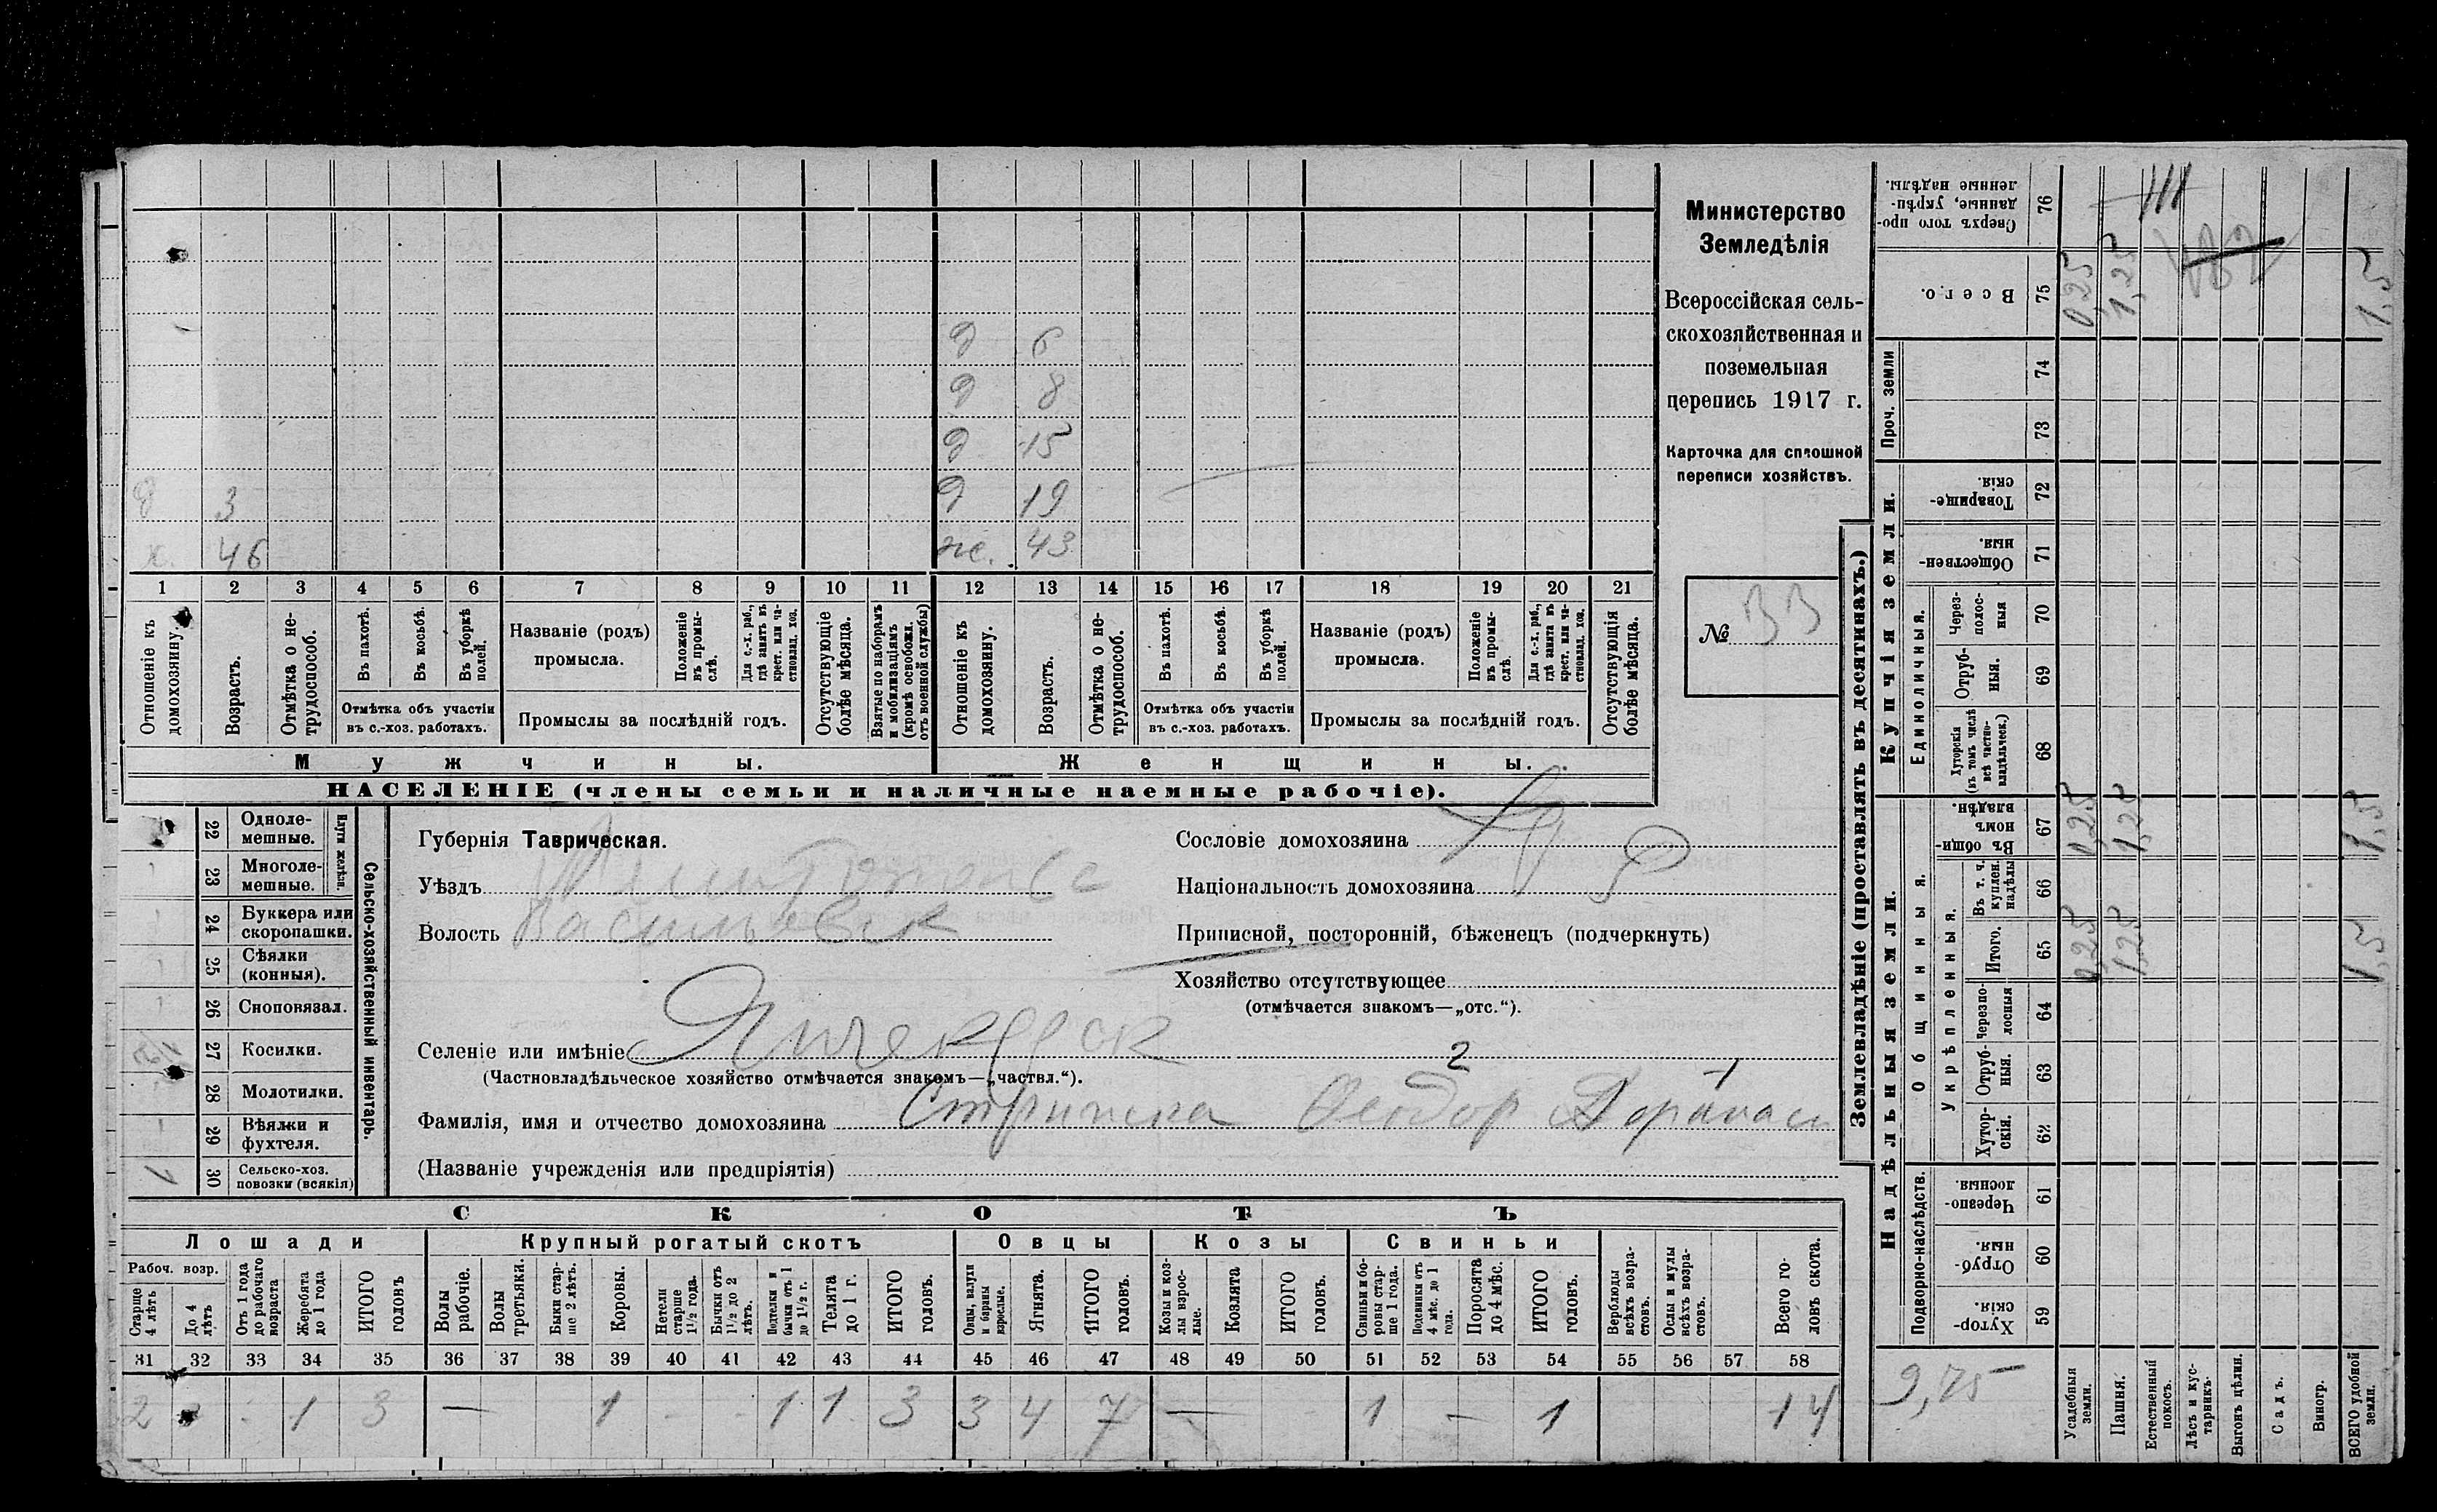 д 6
д 8
д 15
д 3 д 19
х. 46 же. 43
1 2 3 4 5 6 7 8 9 10 11 12 13 14 15 16 17 18 19 20 21
Отношеніе къ домохозяину.
Возрастъ.
Отмѣтка о не-трудоспособ.
Въ пахотѣ.
Въ косьбѣ.
Въ уборкѣ полей.
Отмѣтка объ участіи
въ с.-хоз. работахъ.
Названіе (родъ)
промысла.
Положеніе въ промы-слѣ.
Для с.-х. раб., гдѣ занятъ въ крест. или ча-стновлад. хоз.
Промыслы за послѣдній годъ.
Отсутствующіе болѣе мѣсяца.
Взятые по наборамъ и мобилизаціямъ (кромѣ освобожд. отъ военной службы)
Отношеніе къ домохозяину.
Возрастъ.
Отмѣтка о не-трудоспособ.
Въ пахотѣ.
Въ косьбѣ.
Въ уборкѣ полей.
Отмѣтка объ участіи
въ с.-хоз. работахъ.
Названіе (родъ)
промысла.
Положеніе въ промы-слѣ.
Для с.-х. раб., гдѣ занята въ крест. или ча-стновлад. хоз.
Промыслы за послѣдній годъ.
Отсутствующія болѣе мѣсяца.
Мужчины. Женщины.
НАСЕЛЕНІЕ (члены семьи и наличные наемные рабочіе).
Министерство
Земледѣлія
Всероссійская сель-
скохозяйственная и
поземельная
перепись 1917 г.
Карточка для сплошной
переписи хозяйствъ.
№ 33
Сельско-хозяйственный инвентарь.
Плуги желѣзн.
22 Однолемешные.
23 Многолемешные.
24 Буккера или скоропашки.
25 Сѣялки (конныя).
26 Сноповязал.
27 Косилки.
28 Молотилки.
29 Вѣялки и фухтеля.
1 30 Сельско-хоз. повозки (всякія)
Губернія Таврическая.
Уѣздъ
Волость Васильевск
Селеніе или имѣніе
(Частновладѣльческое хозяйство отмѣчается знакомъ—„частвл.“).
Фамилія, имя и отчество домохозяина Феодор
(Названіе учрежденія или предпріятія)
Сословіе домохозяина
Національность домохозяина
Приписной, посторонній, бѣженецъ (подчеркнуть)
Хозяйство отсутствующее
(отмѣчается знакомъ—„отс.“).
2
СКОТЪ
Лошади Крупный рогатый скотъ Овцы Козы Свиньи
Рабоч. возр.
Старше 4 лѣтъ
До 4 лѣтъ
Отъ 1 года до рабочаго возраста
Жеребята до 1 года
ИТОГО головъ
Волы рабочіе.
Волы третьяки.
Быки стар-ше 2 лѣтъ.
Коровы.
Нетели старше 1½ года.
Бычки отъ 1½ до 2 лѣтъ.
Подтелки и бычки отъ 1 до 1½ г.
Телята до 1 г.
ИТОГО головъ.
Овцы, валухи и бараны взрослые.
Ягнята.
ИТОГО головъ.
Козы и коз-лы взрос-лые.
Козлята
ИТОГО головъ.
Свиньи и бо-ровы стар-ше 1 года.
Подсвинки отъ 4 мѣс. до 1 года.
Поросята до 4 мѣс.
ИТОГО головъ.
Верблюды всѣхъ возра-стовъ.
Ослы и мулы всѣхъ возра-стовъ.
Всего го-ловъ скота.
31 32 33 34 35 36 37 38 39 40 41 42 43 44 45 46 47 48 49 50 51 52 53 54 55 56 57 58
2 1 3 — 1 - - 1 1 3 3 4 7 — 1 — 1 14
Землевладѣніе (проставлять въ десятинахъ.)
Надѣльныя земли. Купчія земли. Проч. земли
Подворно-наслѣдств.
Общинныя.
Укрѣпленныя.
Единоличныя.
59 Хутор-скія.
60 Отруб-ныя.
61 Черезпо-лосныя.
62 Хутор-скія.
63 Отруб-ныя.
64 Черезпо-лосныя
65 Итого. 0,25 1,25 1,5
66 Въ т. ч. куплен. надѣлы
67 Въ общи-номъ владѣн. 0,25 1,25 1,5
68 Хуторскія (въ томъ числѣ всѣ частно-владѣльческ.)
69 Отруб-ныя.
70 Через-полос-ныя
71 Обществен-ныя.
72 Товарище-скія.
73
74
75 Всего. 0,25 1,25 1,5
76 Сверхъ того про-данные, укрѣп-ленные надѣлы.
9,75
Усадебныя земли.
Пашня.
Естественный покосъ.
Лѣсъ и кус-тарникъ.
Выгонъ цѣлин.
Садъ.
Виногр.
ВСЕГО удобной земли.